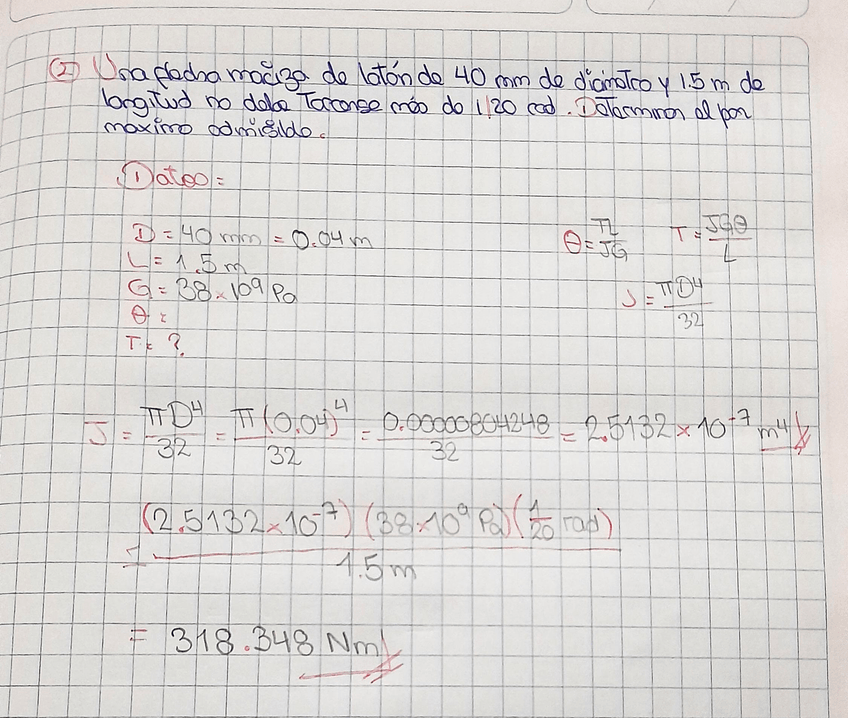 ② Una flecha maciza de latón de 40 mm de diámetro y 1.5 m de
longitud no debe Torcerse más de 1/20 rad. Determinar el par
maximo admisible.
① Datos:
D = 40 mm = 0.04 m
L = 1.5 m
G = 38 × 10⁹ Pa
θ =
T = ?
θ = TL/JG T = JGθ/L
J = πD⁴/32
J = πD⁴/32 = π(0.04)⁴/32 = 0.00000804248/32 = 2.5132 × 10⁻⁷ m⁴
(2.5132 × 10⁻⁷) (38 × 10⁹ Pa) (1/20 rad)
1.5 m
= 318.348 Nm